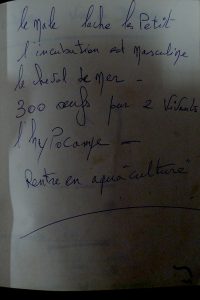 le Male lache les Petit
l'incubation est Masculine
le cheval de Mer -
300 œufs pour 2 Vivants
l'hyPocampe -
Rentre en aqua "culture"